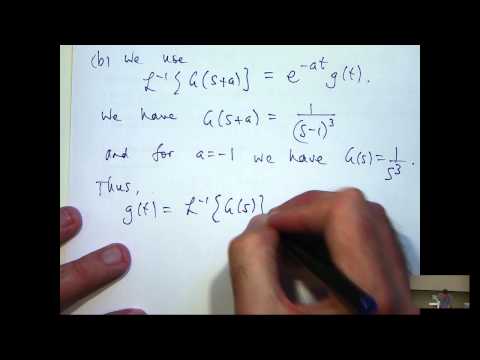 (b) We use
L⁻¹{G(s+a)} = e^{-at} g(t).
We have G(s+a) = 1/(s-1)³
and for a=-1 we have G(s)=1/s³.
Thus,
g(t)= L⁻¹{G(s)}